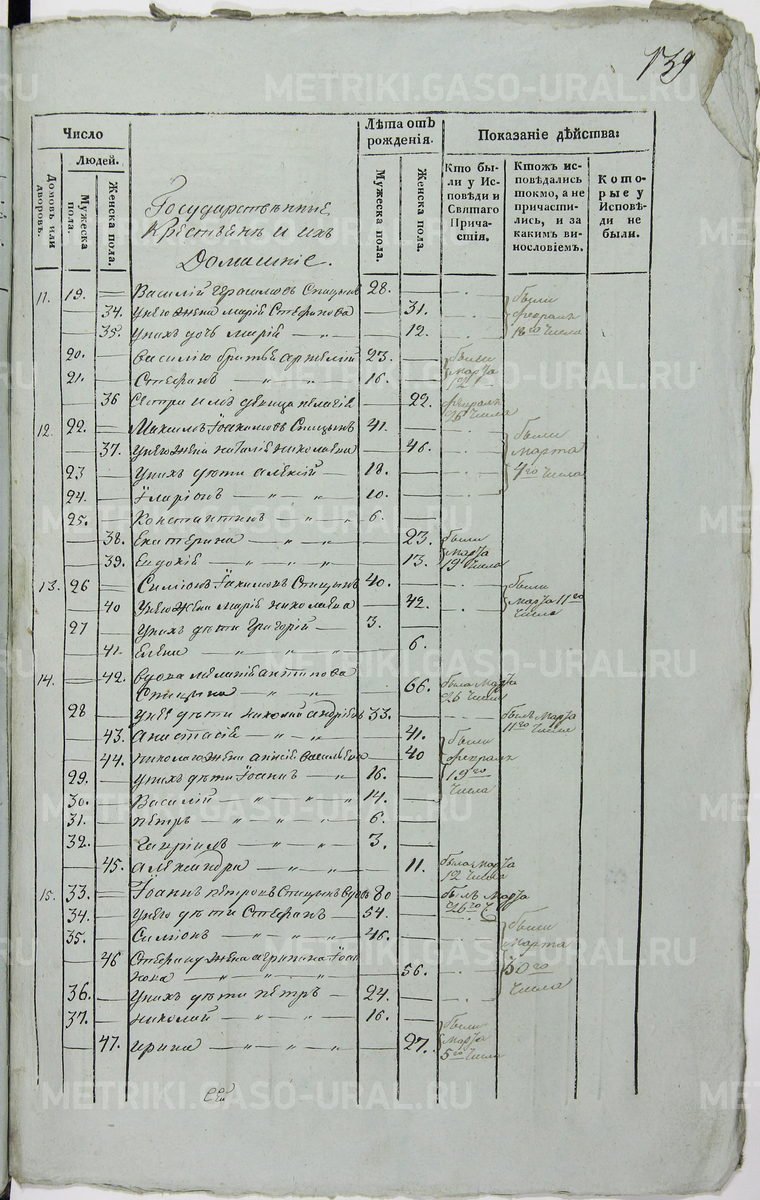 139
Число
Лѣта отъ рожденія.
Показаніе дѣйства:
Людей.
Домовъ или дворовъ.
Мужеска пола.
Женска пола.
Мужеска пола.
Женска пола.
Кто бы-
ли у Ис-
повѣди и
Святаго
Прича-
стія.
Ктожъ ис-
повѣдались
токмо, а не
причасти-
лись, и за
какимъ ви-
нословіемъ.
Кото-
рые у
Исповѣ-
ди не
были.
Государственные
Крестьяне и ихъ
Домашніе.
11. 19. Василій Герасимовъ Спицынъ 28. были
34. Унего жена Марія Стефанова 31. февраля
35. Унихъ дочь Марія 12. 18го числа
20. Василію братья Артемій 23. были
21. Стефанъ 16. марта 12
36 Сестра имъ девица Пелагія 22. февраля 26 числа
12. 22. Максимъ Іоакимовъ Спицынъ 41. были
37. Унего жена Наталія Николаева 46. марта
23 Унихъ дѣти Алексій 18. 7го числа
24. Иларіонъ 10.
25. Константинъ 6.
38. Екатерина 23. были
39. Евдокія 13. марта 19 числа
13. 26 Симіонъ Іакимовъ Спицынъ 40. были
40 Унего жена Марія Николаева 42. марта 11го числа
27 Унихъ дѣти Григорій 3.
41. Елена 6.
14. 42. Вдова Меланія Антипова
Спицына 66. была марта 26 числа
28 Унея дѣти Николай Андріевъ 33. былъ марта 11го числа
43. Анастасія 41. были
44. Николаю жена Анисія Васильева 40 февраля
29. Унихъ дѣти Іоаннъ 16. 19го числа
30. Василій 14.
31. Петръ 6.
32. Гавріилъ 3.
45. Александра 11. была марта 12 числа
15. 33. Іоаннъ Петровъ Спицынъ вдовъ 80 былъ марта 26го ч
34. Унего дѣти Стефанъ 54. были
35. Симіонъ 46. марта
46 Стефану жена Агрипина
56. 30го числа
36. Унихъ дѣти Петръ 24.
37. Николай 16. были
47. Ирина 27. марта 5го числа